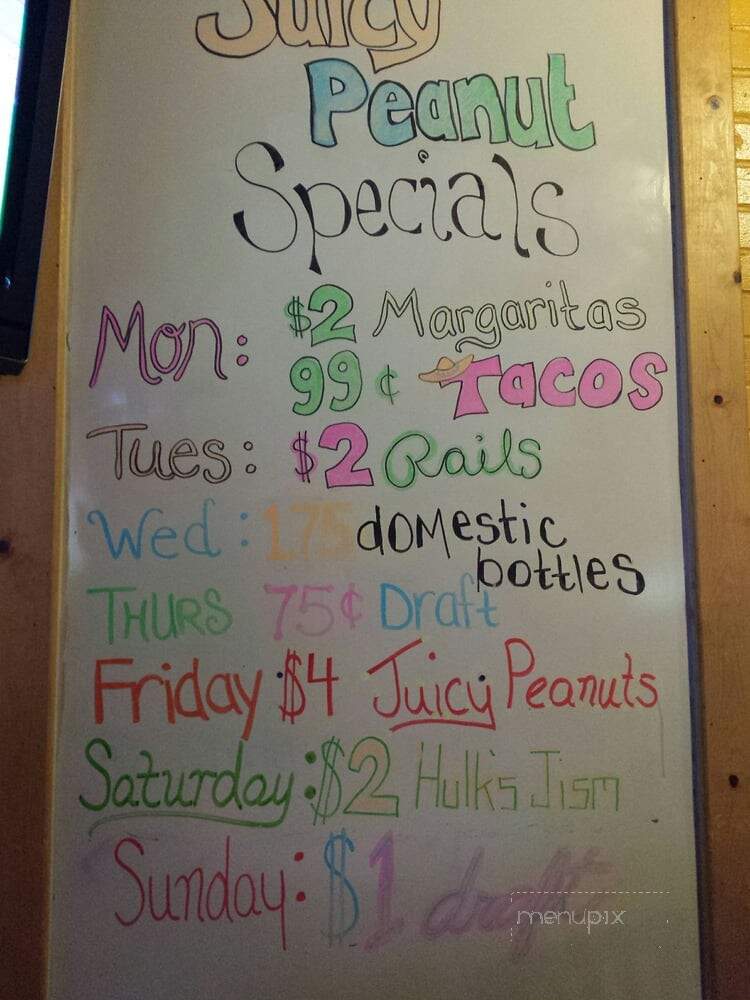 Juicy
Peanut
Specials
Mon: $2 Margaritas
99¢ Tacos
Tues: $2 Rails
Wed: 1.75 domestic
bottles
THURS 75¢ Draft
Friday $4 Juicy Peanuts
Saturday: $2 Hulk's Jism
Sunday: $1 draft
menupix